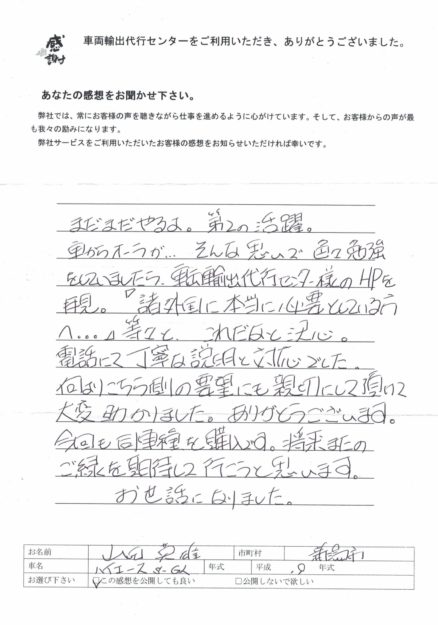 感謝
車両輸出代行センターをご利用いただき、ありがとうございました。
あなたの感想をお聞かせ下さい。
弊社では、常にお客様の声を聴きながら仕事を進めるように心がけています。そして、お客様からの声が最
も我々の励みになります。
弊社サービスをご利用いただいたお客様の感想をお知らせいただければ幸いです。
まだまだやるよ。第2の活躍。
車からオーラが… そんな思いで色々勉強
をしていましたら、車両輸出代行センター様のHPを
拝見。『諸外国に本当に必要としている
へ…』等々と、これだなと決心。
電話にて丁寧な説明と対応でした。
何よりこちら側の要望にも親切にして頂けて
大変助かりました。ありがとうございます。
今回も同車種を購入です。将来またの
ご縁を期待して行こうと思います。
お世話になりました。
お名前 市町村
車名 ハイエース S-GL 年式 平成 .9 年式
お選び下さい ☑この感想を公開しても良い □公開しないで欲しい